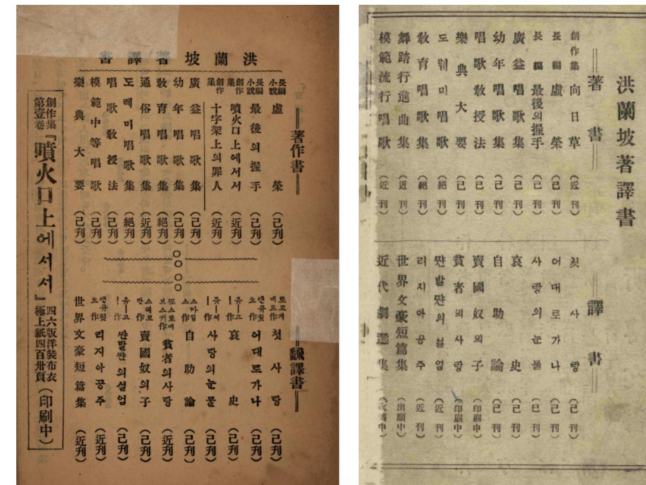 洪蘭坡著譯書
著作書
長編小說 虛榮 (己刊)
長編小說 最後의握手 (己刊)
創作集 噴火口上에서서 (近刊)
創作集 十字架上의罪人 (近刊)
廣益唱歌集 (己刊)
幼年唱歌集 (己刊)
敎育唱歌集 (絕刊)
通俗唱歌集 (近刊)
도레미唱歌集 (絕刊)
唱歌敎授法 (己刊)
模範中等唱歌 (近刊)
樂典大要 (己刊)
飜譯書
첫사랑 (己刊)
어대로가나 (己刊)
哀史 (己刊)
사랑의눈물 (己刊)
自助論 (己刊)
貧者의사랑 (近刊)
賣國奴의子 (己刊)
싼발싼의설업 (己刊)
리지아공주 (近刊)
世界文豪短篇集 (近刊)
創作集第壹卷『噴火口上에서서』四六版洋裝布衣 極上紙四百卅頁 (印刷中)
洪蘭坡著譯書
著書
創作集 向日草 (近刊)
長編 虛榮 (己刊)
長編 最後의握手 (己刊)
廣益唱歌集 (己刊)
幼年唱歌集 (己刊)
唱歌敎授法 (己刊)
樂典大要 (己刊)
도레미唱歌集 (絕刊)
敎育唱歌集 (絕刊)
舞踏行進曲集 (近刊)
模範流行唱歌 (近刊)
譯書
첫사랑 (己刊)
어대로가나 (己刊)
사랑의눈물 (己刊)
哀史 (己刊)
自助論 (己刊)
賣國奴의子 (印刷中)
貧者의사랑 (印刷中)
싼발싼의설업 (近刊)
리지아공주 (近刊)
世界文豪短篇集
近代劇選集